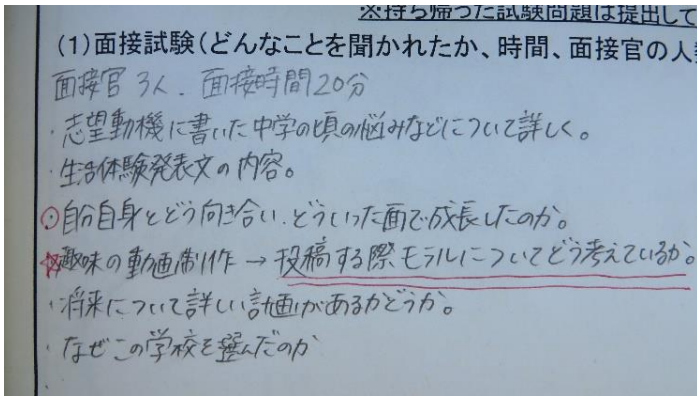 ※持ち帰った試験問題は提出して
(1)面接試験(どんなことを聞かれたか、時間、面接官の人数
面接官 3人. 面接時間20分
・志望動機に書いた中学の頃の悩みなどについて詳しく。
・生活体験発表文の内容。
○自分自身とどう向き合い、どういった面で成長したのか。
☆趣味の動画制作 → 投稿する際モラルについてどう考えているか。
・将来について詳しい計画があるかどうか。
・なぜこの学校を選んだのか